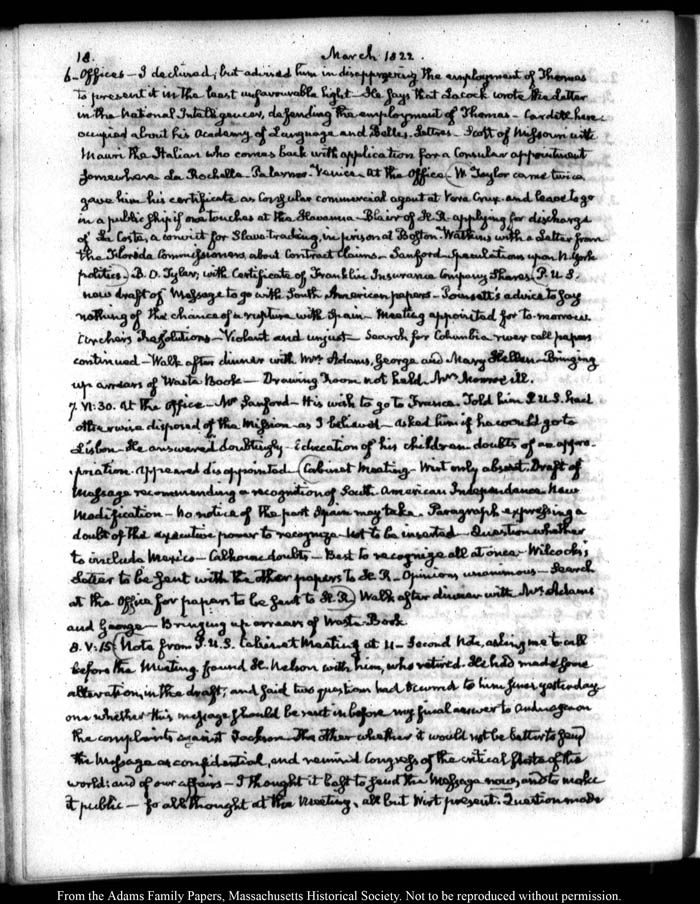 18.
March 1822.
6— Offices — I declined; but advised him in disapproving the employment of Thomas
to present it in the least unfavourable light — He says that Lacock wrote the Letter
in the National Intelligencer, defending the employment of Thomas — Cardelli here
occupied about his Academy of Language and Belles-Lettres — Scott of Missouri with
Mauri the Italian who comes back with application for a Consular appointment
somewhere La Rochelle — Palermo — Venice. At the Office — W. Taylor came twice
gave him his certificate as Consular commercial agent at Vera Cruz and leave to go
in a public ship if one touches at the Havanna — Blair of H.R. applying for discharge
of La Coste, a convict for Slave trading, in prison at Boston — Watkins with a Letter from
the Florida Commissioners, about Contract Claims — Sanford — Speculations upon N. York
politics — D. O. Tyler, with Certificate of Franklin Insurance Company Shares. P.U.S.
new draft of Message to go with South American papers — Poinsett's advice to say
nothing of the chance of a rupture with Spain — Meeting appointed for to-morrow
Archer's Resolutions — Violent and unjust — Search for Columbia river call papers
continued — Walk after dinner with Mrs Adams, George and Mary Hellen — Bringing
up arrears of Waste Book — Drawing Room not held. Mrs Monroe ill.
7. VI:30. At the Office — Mr Sanford — His wish to go to France. Told him P.U.S. had
otherwise disposed of the Mission as I believed — asked him if he would go to
Lisbon — He answered doubtingly — Education of his children — doubts of an appro-
-priation. Appeared disappointed (Cabinet Meeting — Wirt only absent. Draft of
Message recommending a recognition of South American Independence New
Modification — No notice of the part Spain may take. Paragraph expressing a
doubt of the executive power to recognize not to be inserted — Question whether
to include Mexico — Calhoun doubts — Best to recognize all at once — Wilcocks's
Letter to be sent with the other papers to H.R. — Opinions unanimous — Search
at the Office for papers to be sent to H.R.) Walk after dinner with Mrs Adams
and George — Bringing up arrears of Waste-Book
8. V:15 (Note from P.U.S. Cabinet Meeting at 11 — Second Note, asking me to call
before the Meeting found H. Nelson with him, who retired. He had made some
alteration, in the draft; and said two questions had occurred to him since yesterday
one whether this message should be sent in before my final answer to Anduaga on
the complaints against Jackson. The other whether it would not be better to send
the Message as confidential, and remind Congress of the critical State of the
world: and of our affairs — I thought it best to send the Message now, and to make
it public — so all thought at the Meeting, all but Wirt present. Question made
From the Adams Family Papers, Massachusetts Historical Society. Not to be reproduced without permission.